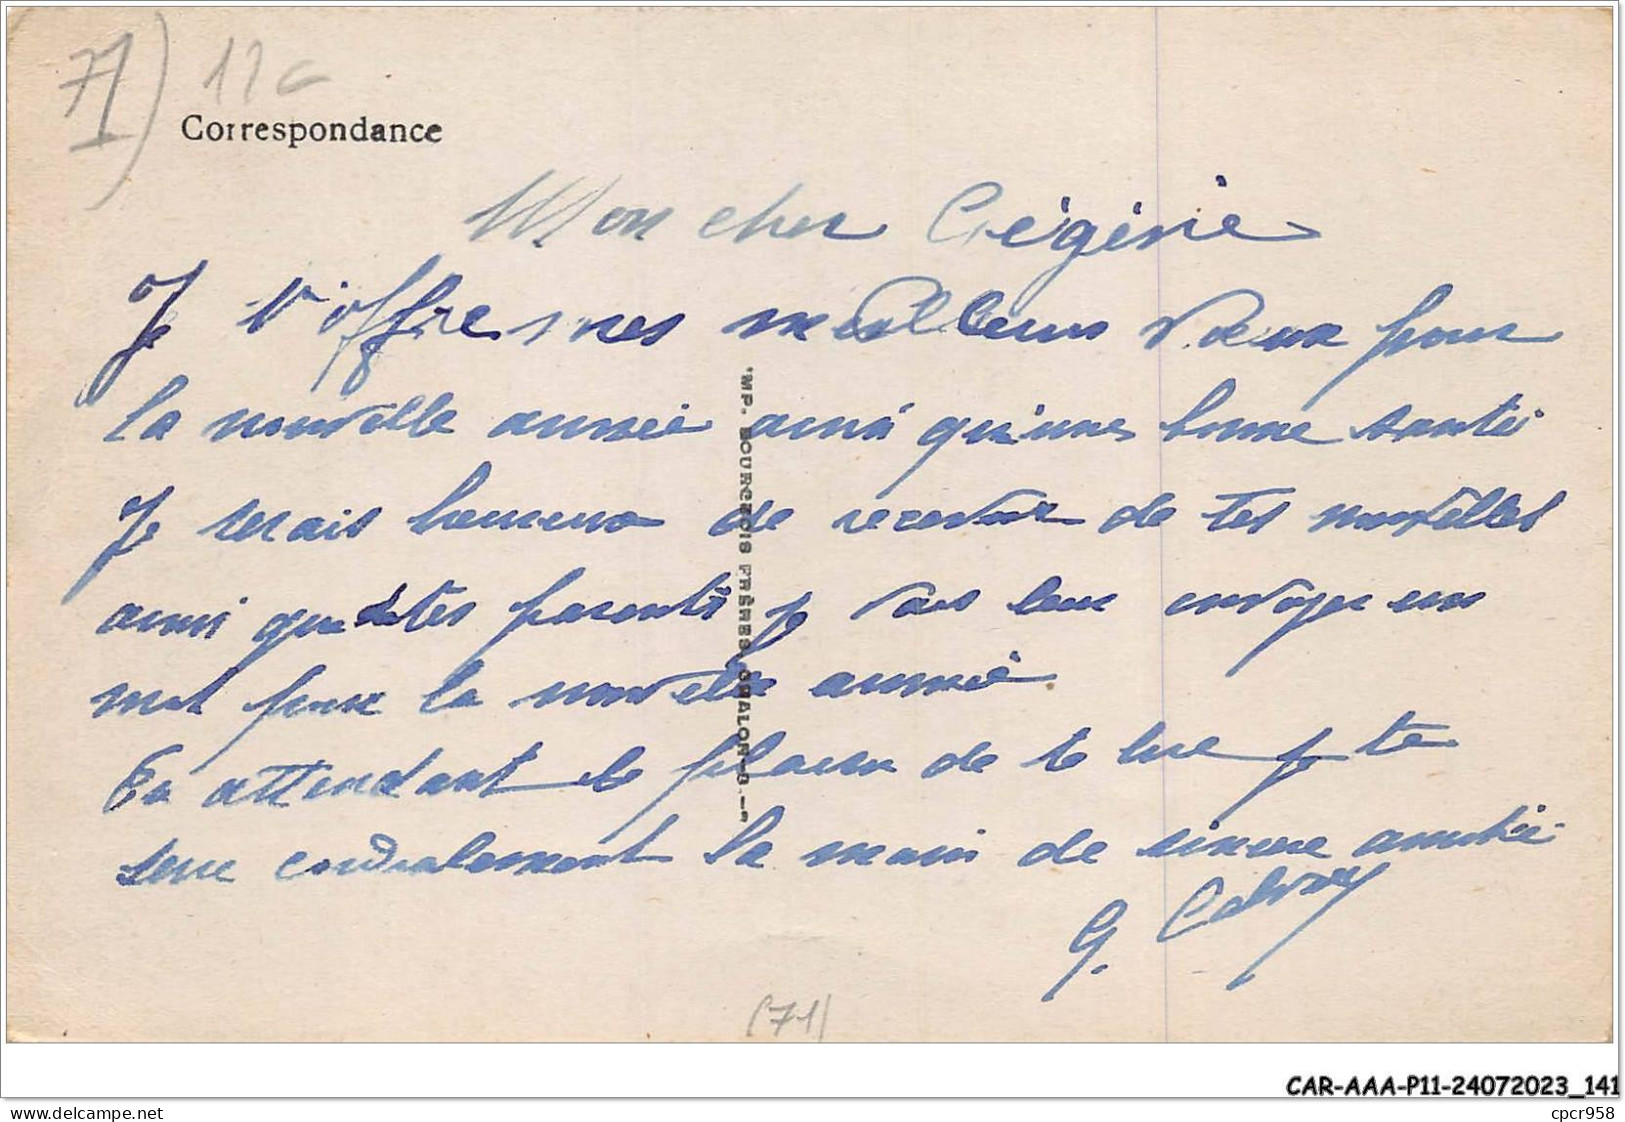 71) 11c
Correspondance
Mon cher
Je t'offre mes meilleurs Vœux pour
la nouvelle année ainsi qu'une bonne santé
Je serais heureux de recevoir de tes nouvelles
ainsi que de tes parents je vais leur envoyer un
mot pour la nouvelle année
En attendant le plaisir de te lire je te
serre cordialement la main de sincère amitié.
G.
IMP. BOURGEOIS FRÈRES, CHALON-S.-
(71)
CAR-AAA-P11-24072023_141
www.delcampe.net
cpcr958